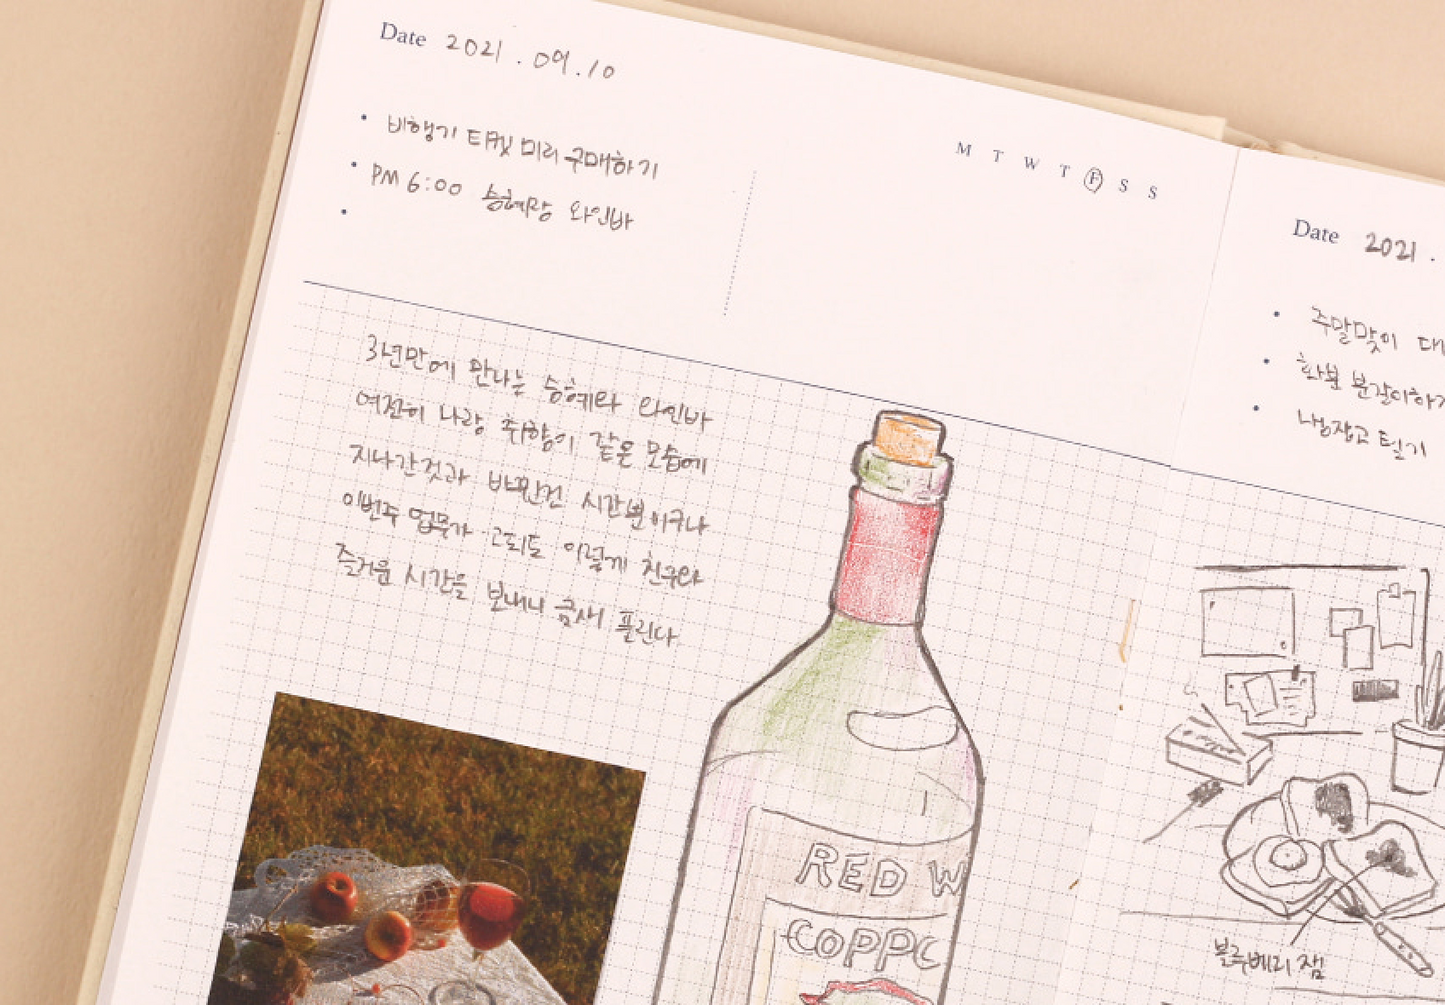 Date 2021 . 09 . 10
• 비행기 티켓 미리 구매하기
• PM 6:00 승혜랑 와인바
•
M T W T F S S
3년만에 만나는 승혜와 와인바
여전히 나랑 취향이 같은 모습에
지나간것과 바뀐건 시간뿐이구나
이번주 업무가 고되도 이렇게 친구와
즐거운 시간을 보내니 금새 풀린다
RED W
COPPO
Date 2021 .
• 주말맞이 대
• 화분 분갈이하기
• 냉장고 털기
블루베리 잼